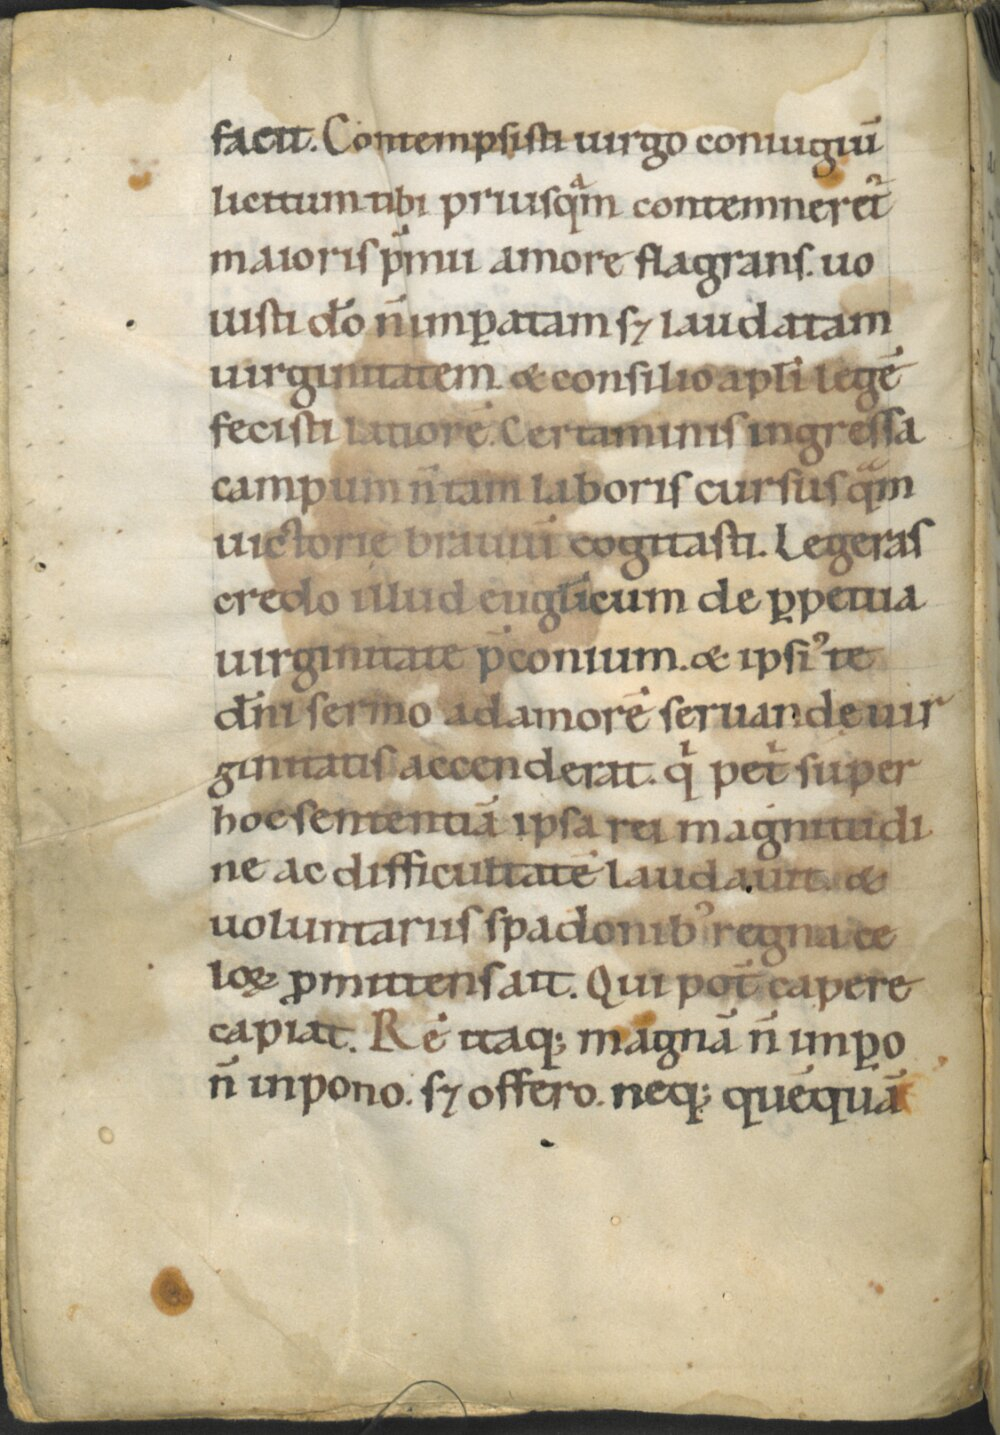 facit. Contempsisti uirgo coniugiū
licitum tibi priusqᵃm contemneret᷑
maioris p̄mii amore flagrans. uo
uisti do̅ n̄ imꝑatam sꝫ laudatam
uirginitatem & consilio apl̄i legē
fecisti latiorē. Certaminis ingressa
campum n̄ tam laboris cursus qᵃm
uictorię brauiū cogitasti. Legeras
credo illud eugl̄icum de ꝑpetua
uirginitate p̄conium. & ipsiꝰ te
dn̄i sermo ad amorē seruandę uir
ginitatis accenderat. qⁱ pet᷑ super
hoc sententiā ipsa rei magnitudi
ne ac difficultatē laudauit. &
uoluntariis spadonibꝰ regna ce
loꝝ ꝓmittens ait. Qui pot̄ capere
capiat. Rē itaqꝫ magnā n̄ imꝑo
n̄ inpono. sꝫ offero. neqꝫ quēquā